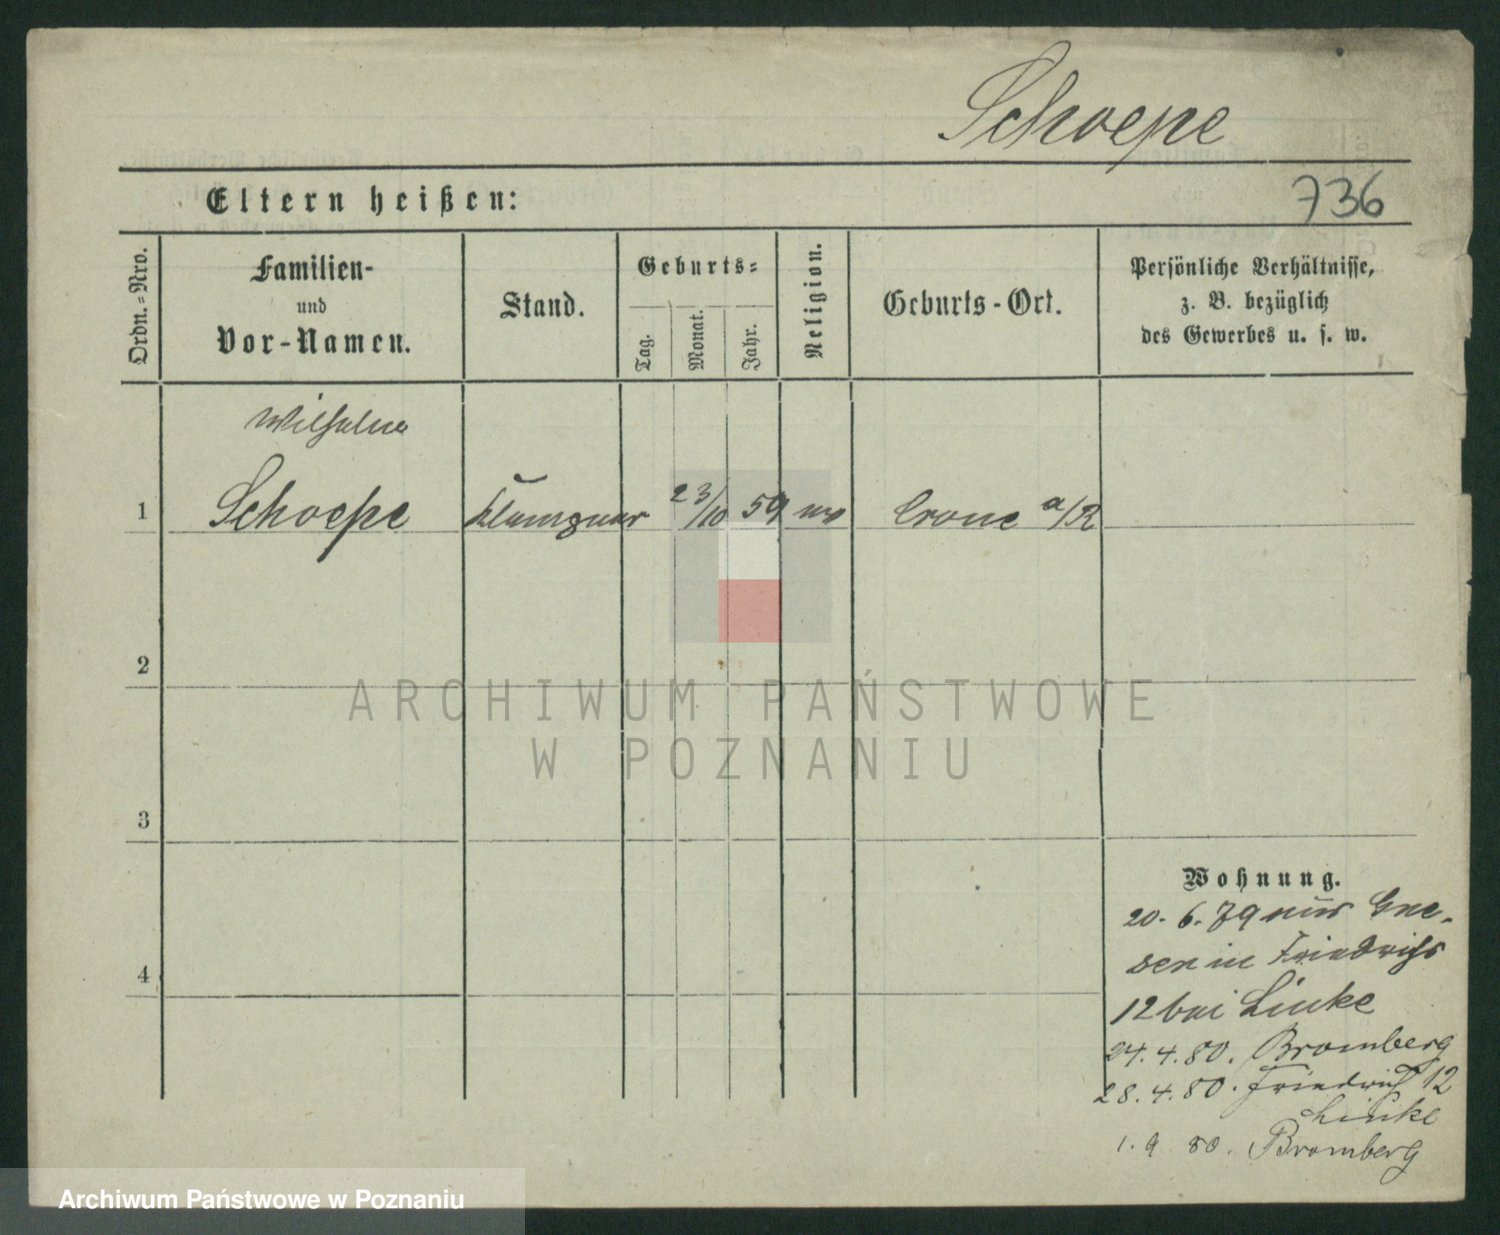 Schoepe
Eltern heißen:
736
Ordn.=Nro.
Familien-
und
Vor-Namen.
Stand.
Geburts=
Tag.
Monat.
Jahr.
Religion.
Geburts-Ort.
Persönliche Verhältnisse,
z. B. bezüglich
des Gewerbes u. s. w.
Wilhelm
1 Schoepe Klempner 23/10 59 ev Crone a/B
2
3
4
ARCHIWUM PAŃSTWOWE
W POZNANIU
Wohnung.
20. 6. 79 aus Gne-
sen in Friedrichs
12 bei Linke
24. 4. 80. Bromberg
28. 4. 80. Friedrich 12
Linke
1. 9 80. Bromberg
Archiwum Państwowe w Poznaniu